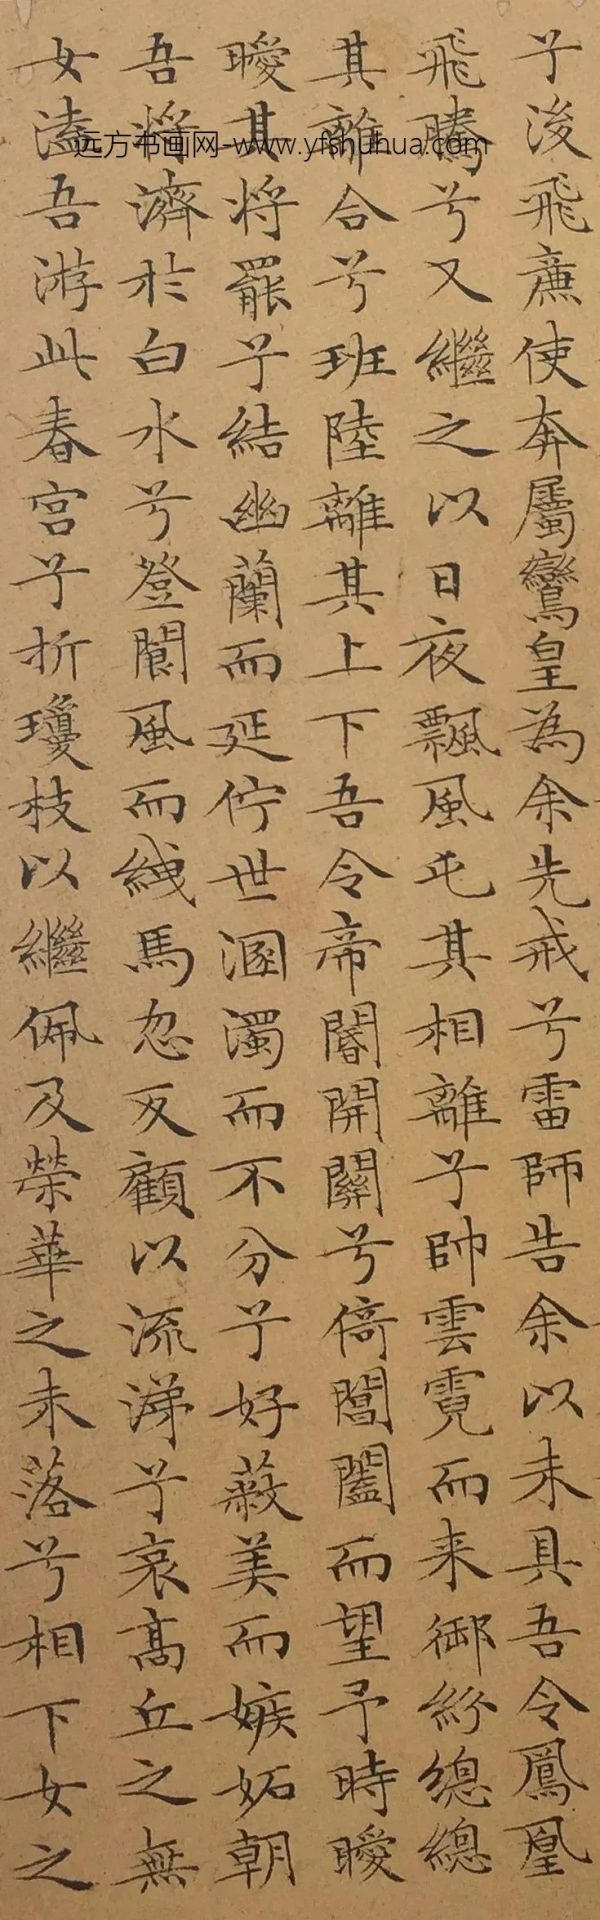 兮後飛廉使奔屬鸞皇為余先戒兮雷師告余以未具吾令鳳凰
飛騰兮又繼之以日夜飄風屯其相離兮帥雲霓而来御紛總總
其離合兮班陸離其上下吾令帝閽開關兮倚閶闔而望予時曖
曖其將罷兮結幽蘭而延佇世溷濁而不分兮好蔽美而嫉妬朝
吾將濟於白水兮登閬風而絏馬忽反顧以流涕兮哀高丘之無
女溘吾游此春宮兮折瓊枝以繼佩及榮華之未落兮相下女之
远方书画网-www.yfshuhua.com